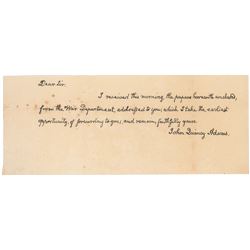 Dear Sir.
I received this morning the papers herewith enclosed,
from the War Department, addressed to you; which I take the earliest
opportunity of forwarding to you, and remain, faithfully yours.
John Quincy Adams.